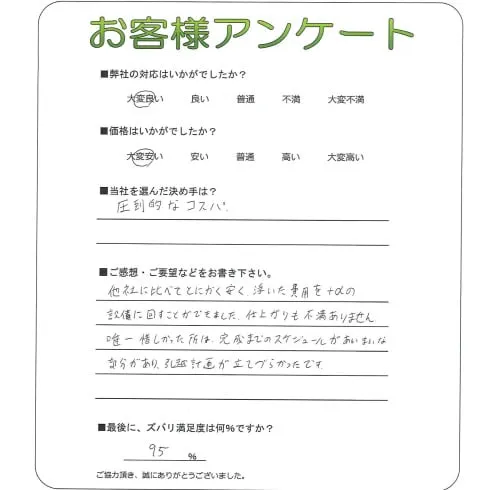 お客様アンケート
■弊社の対応はいかがでしたか？
大変良い 良い 普通 不満 大変不満
■価格はいかがでしたか？
大変安い 安い 普通 高い 大変高い
■当社を選んだ決め手は？
圧倒的なコスパ.
■ご感想・ご要望などをお書き下さい。
他社に比べてとにかく安く、浮いた費用を+αの
設備に回すことができました。仕上がりも不満ありません
唯一惜しかった所は、完成までのスケジュールがあいまいな
部分があり、引越計画が立てづらかったです.
■最後に、ズバリ満足度は何％ですか？
95 ％
ご協力頂き、誠にありがとうございました。